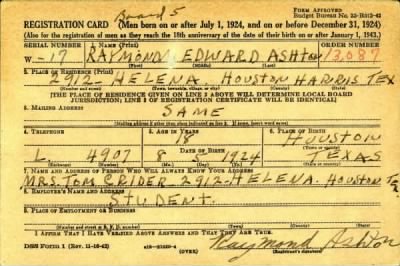 Board 5
FORM APPROVED
Budget Bureau No. 33-R012-42
REGISTRATION CARD (Men born on or after July 1, 1924, and on or before December 31, 1924)
(Also for the registration of men as they reach the 18th anniversary of the date of their birth on or after January 1, 1943.)
SERIAL NUMBER 1. NAME (Print) ORDER NUMBER
W-17 RAYMOND EDWARD ASHTON 13,087
2. PLACE OF RESIDENCE (Print)
2912 HELENA. HOUSTON HARRIS TEX
[THE PLACE OF RESIDENCE GIVEN ON LINE 2 ABOVE WILL DETERMINE LOCAL BOARD
JURISDICTION; LINE 2 OF REGISTRATION CERTIFICATE WILL BE IDENTICAL]
3. MAILING ADDRESS
SAME
4. TELEPHONE 5. AGE IN YEARS 6. PLACE OF BIRTH
18 HOUSTON
DATE OF BIRTH
L 4907 8 1924 TEXAS
7. NAME AND ADDRESS OF PERSON WHO WILL ALWAYS KNOW YOUR ADDRESS
MRS. TOM CRIDER 2912-HELENA. HOUSTON
8. EMPLOYER'S NAME AND ADDRESS
STUDENT.
9. PLACE OF EMPLOYMENT OR BUSINESS
I AFFIRM THAT I HAVE VERIFIED ABOVE ANSWERS AND THAT THEY ARE TRUE.
DSS Form 1 (Rev. 11-16-42) (OVER) Raymond Ashton